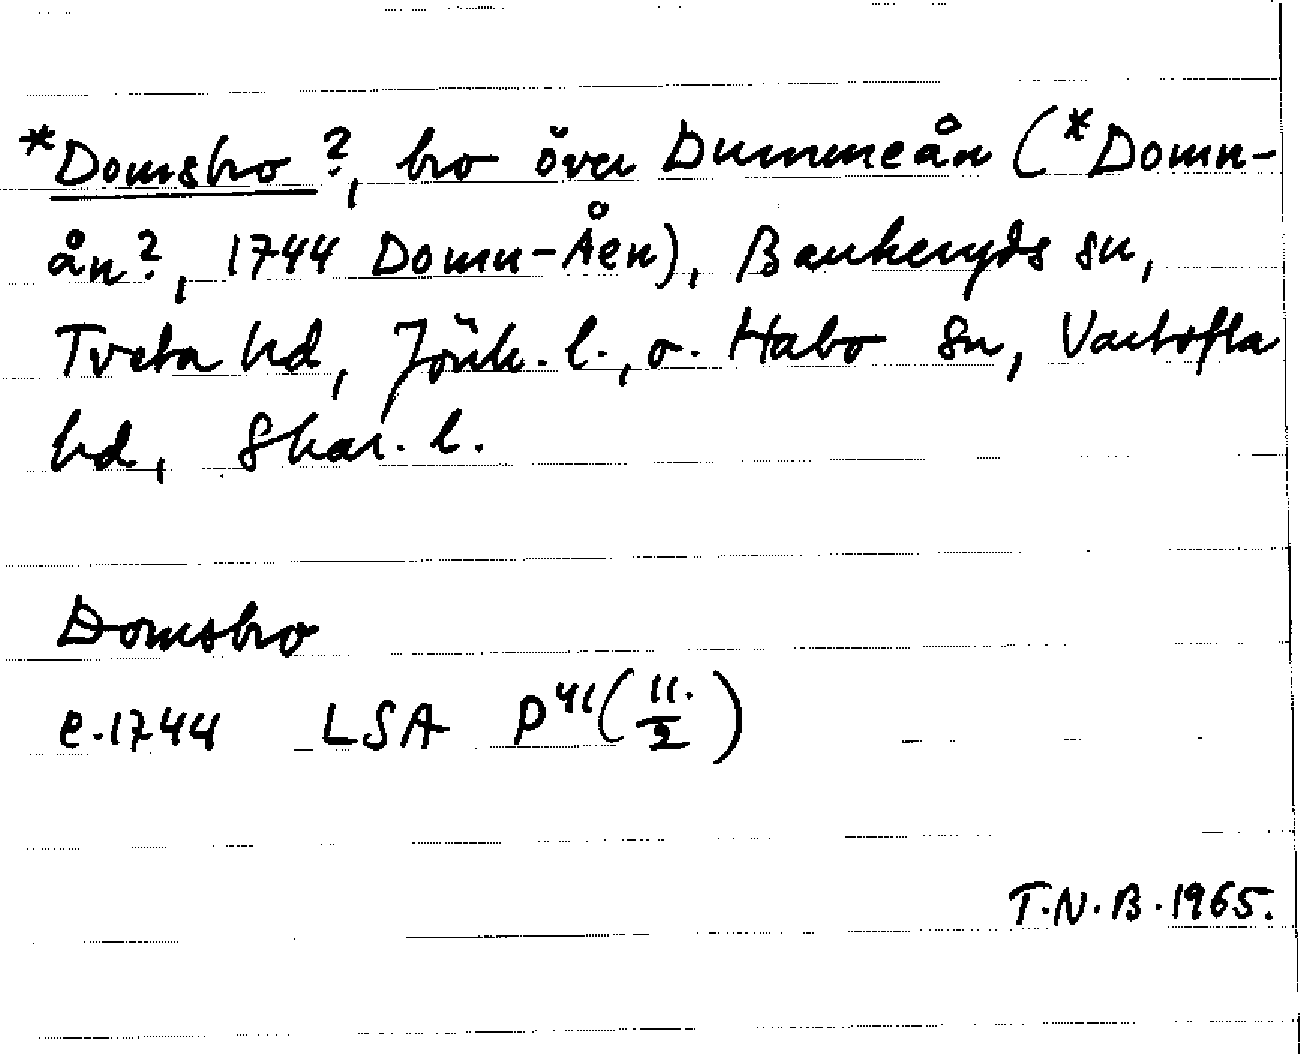 *Domsbro?, bro över Dummeån (*Domn-
ån?, 1744 Domn-Åen), Bankeryds sn,
Tveta hd, Jönk. l., o. Habo sn, Vartofta
hd, Skar. l.
Domsbro
e. 1744 LSA P⁴¹(11./2)
T.N.B. 1965.